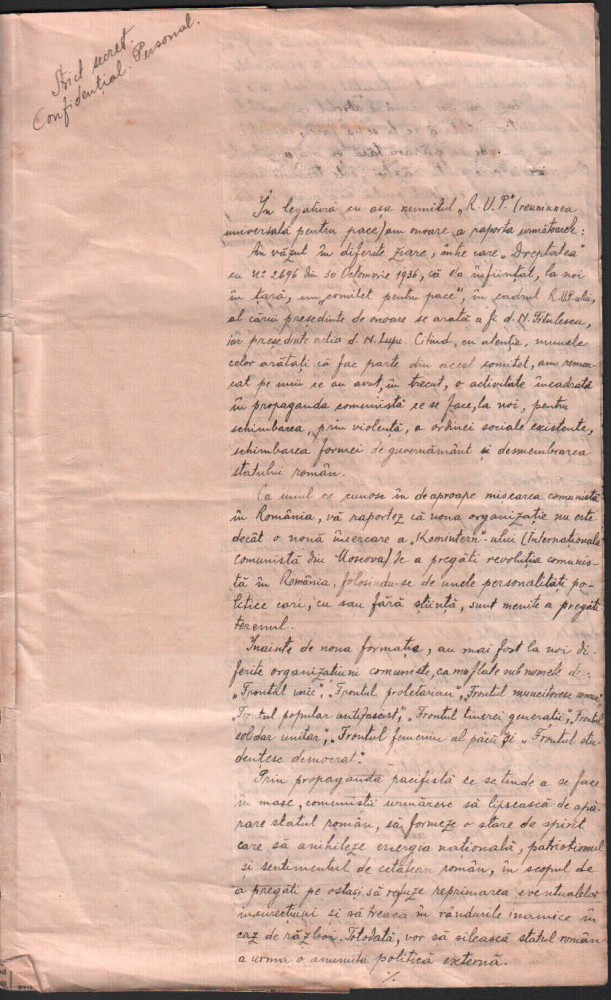 Strict secret.
Confidențial. Personal.
În legătură cu așa numitul „R.U.P" (reuniunea
universală pentru pace) am onoare a raporta următoarele:
Am văzut în diferite ziare, între care „Dreptatea"
cu No 2696 din 30 Octomvrie 1936, că s'a înființat, la noi
în țară, un „comitet pentru pace", în cadrul R.U.P-ului,
al cărui președinte de onoare se arată a fi d. N. Titulescu,
iar președinte activ d. N. Lupu. Citind, cu atenție, numele
celor arătați că fac parte din acest comitet, am remar-
cat pe unii ce au avut, în trecut, o activitate încadrată
în propaganda comunistă ce se face, la noi, pentru
schimbarea, prin violență, a ordinei sociale existente,
schimbarea formei de guvernământ și desmembrarea
statului român.
Ca unul ce cunosc în deaproape mișcarea comunistă
în România, vă raportez că noua organizație nu este
decât o nouă încercare a „Komintern"-ului (Internationala
comunistă din Moscova) de a pregăti revoluția comunis-
tă în România, folosindu-se de unele personalități po-
litice cari, cu sau fără știință, sunt menite a pregăti
terenul.
Înainte de noua formație, au mai fost la noi di-
ferite organizațiuni comuniste, camuflate sub numele de:
„Frontul unic", „Frontul proletarian", „Frontul muncitoresc
„Frontul popular antifascist", „Frontul tinerei generații", „Frontul
solidar unitar", „Frontul femenin al păcii" și „Frontul stu-
dențesc democrat".
Prin propaganda pacifistă ce se tinde a se face
în mase, comuniștii urmăresc să lipsească de apă-
rare statul român, să formeze o stare de spirit
care să anihileze energia națională, patriotismul
și sentimentul de cetățean român, în scopul de
a pregăti pe ostași să refuze reprimarea eventualelor
insurecțiuni și să treacă în rândurile inamice în
caz de război. Totodată, vor să silească statul român
a urma o anumită politică externă.
./.